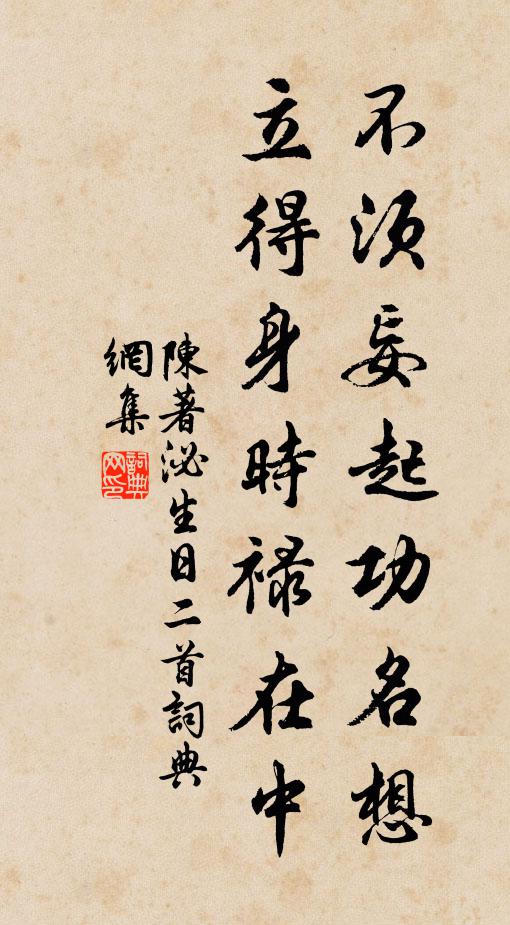 不須妄起功名想
立得身時祿在中
陳著泌生日二首詞典
網集
詞典
网印